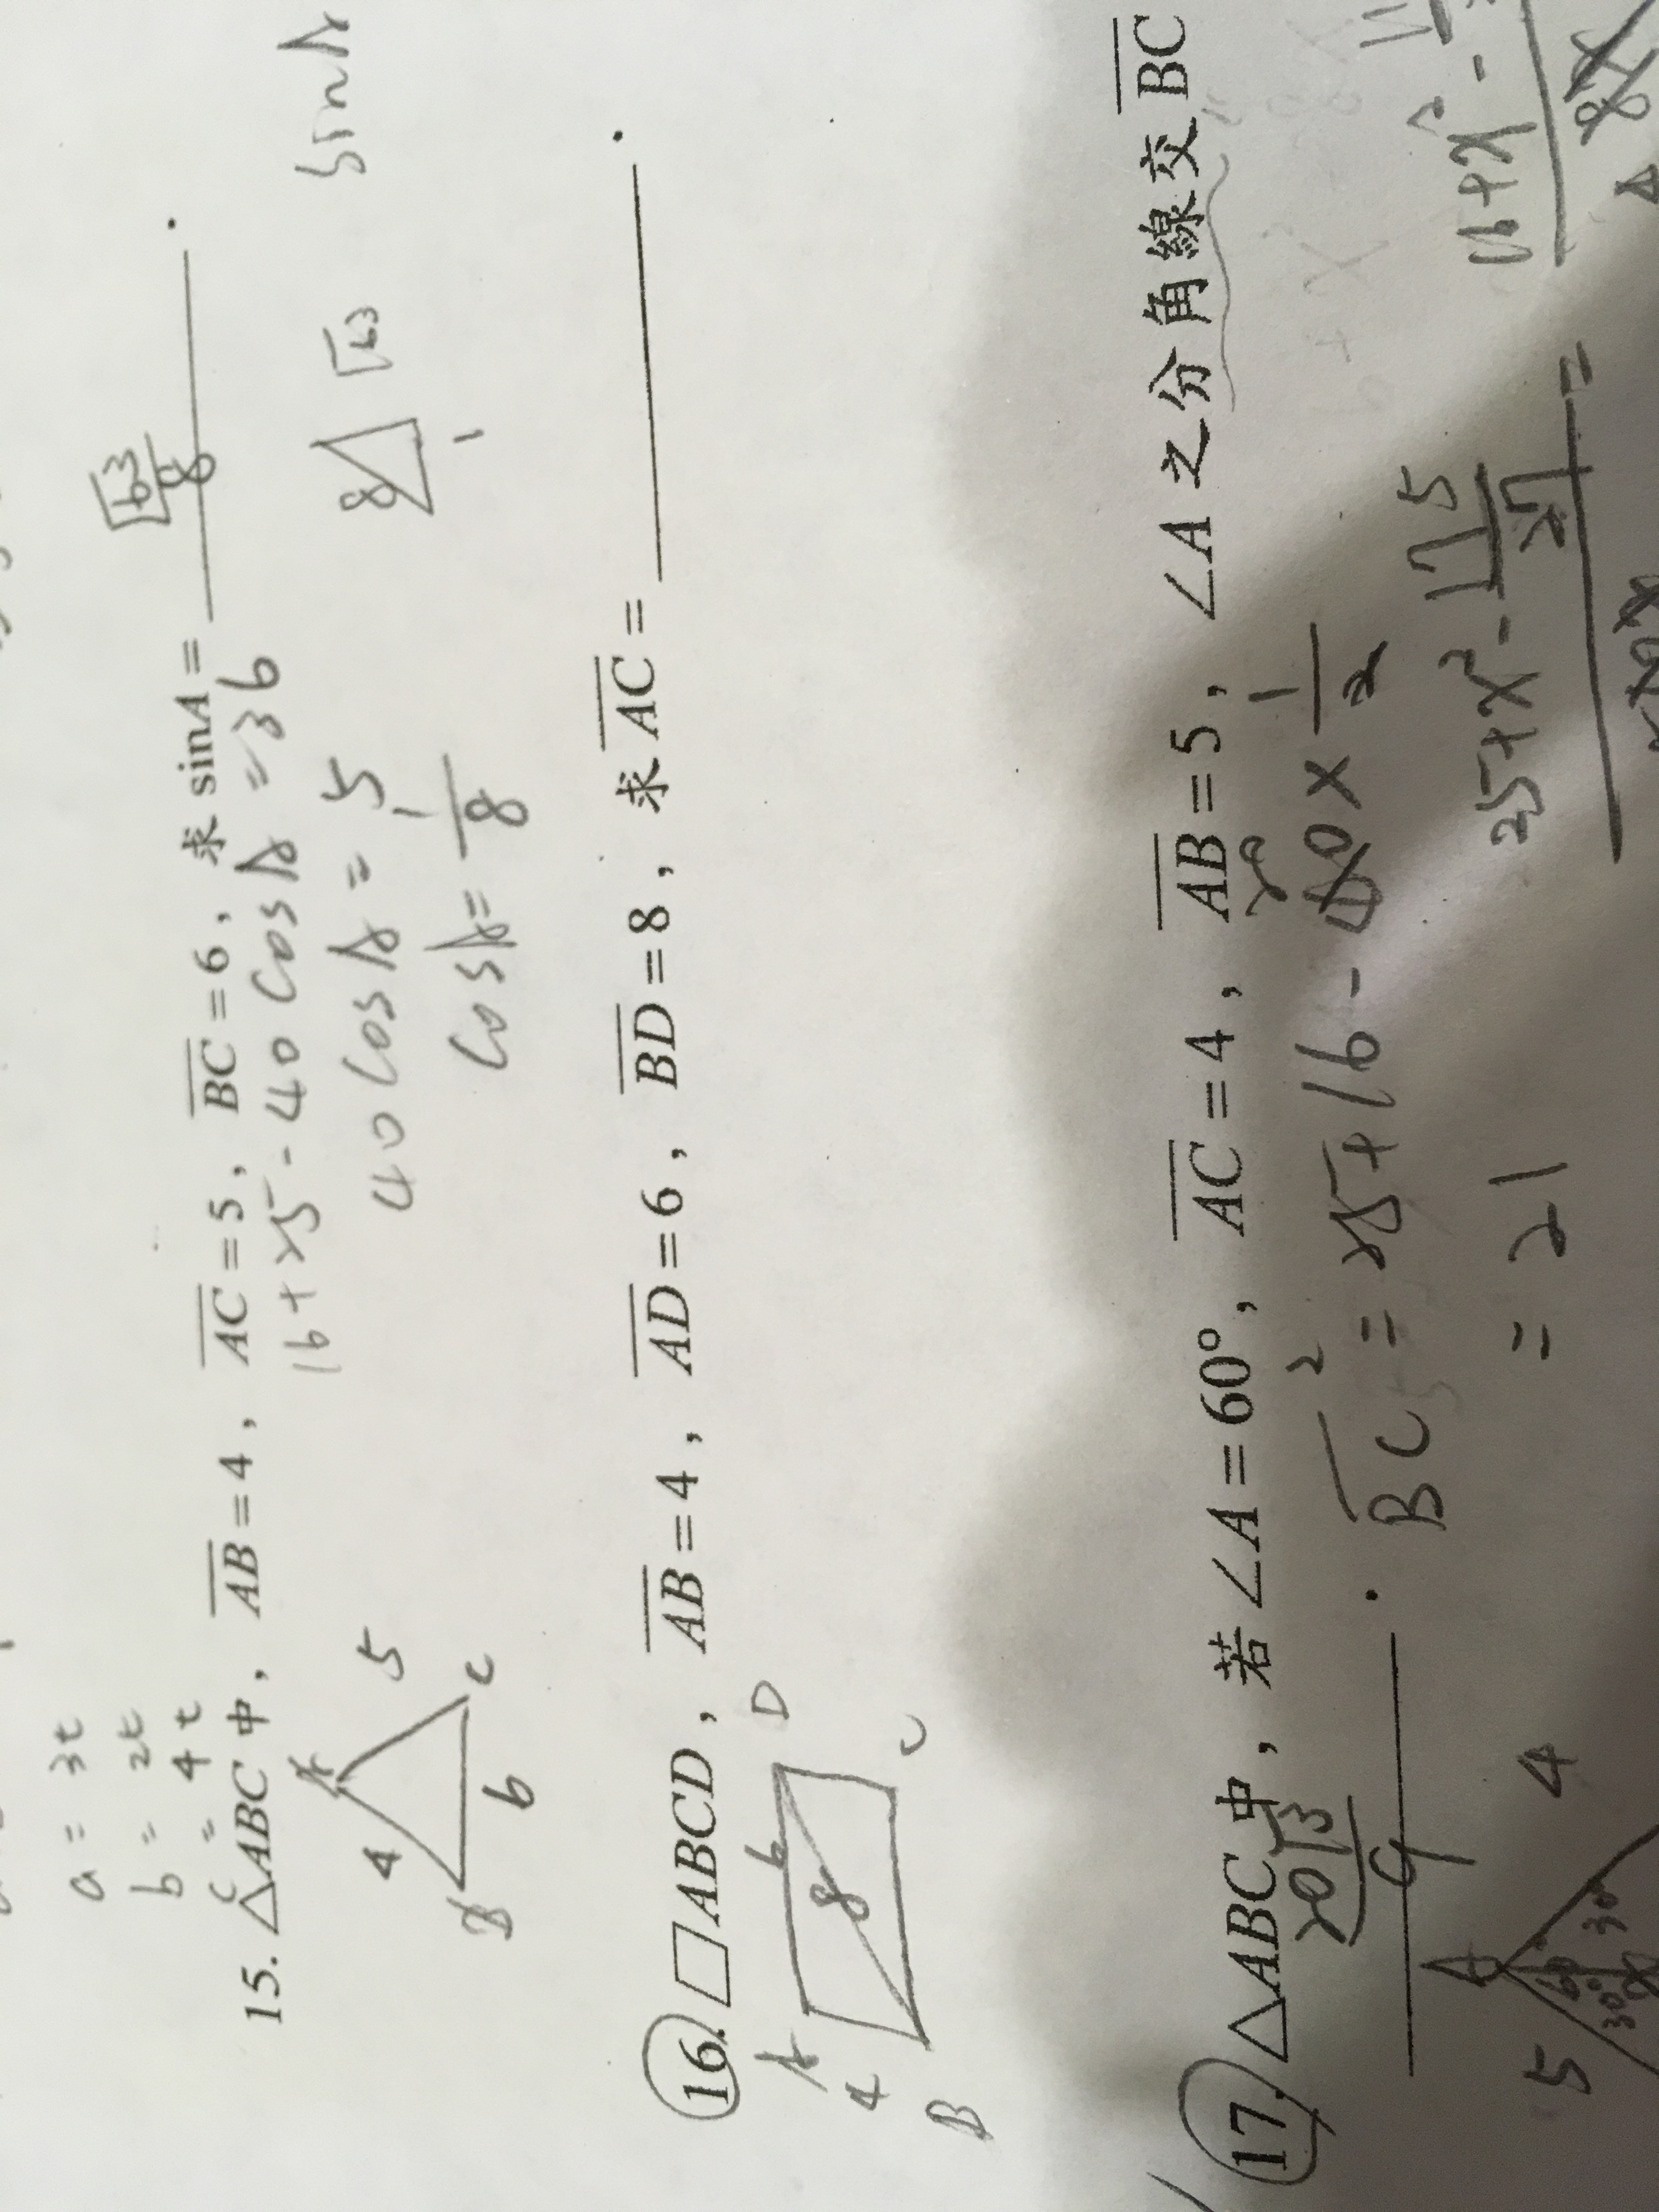 a = 3t
b = 2t
c = 4t
15. △ABC 中，AB=4，AC=5，BC=6，求 sinA= √63/8 .
16+25-40cosA=36
40cosA=5
cosA=1/8
A
4
5
B
6
C
8
√63
1
sinA
16. ▱ABCD，AB=4，AD=6，BD=8，求 AC= .
A
6
D
4
8
B
C
17. △ABC 中，若 ∠A=60°，AC=4，AB=5，∠A 之分角線交 BC
20√3/9 .
BC²=25+16-40×1/2
=21
A
5
4
60°
30°
30°
x
25+x²-
=
16+x²-
8x